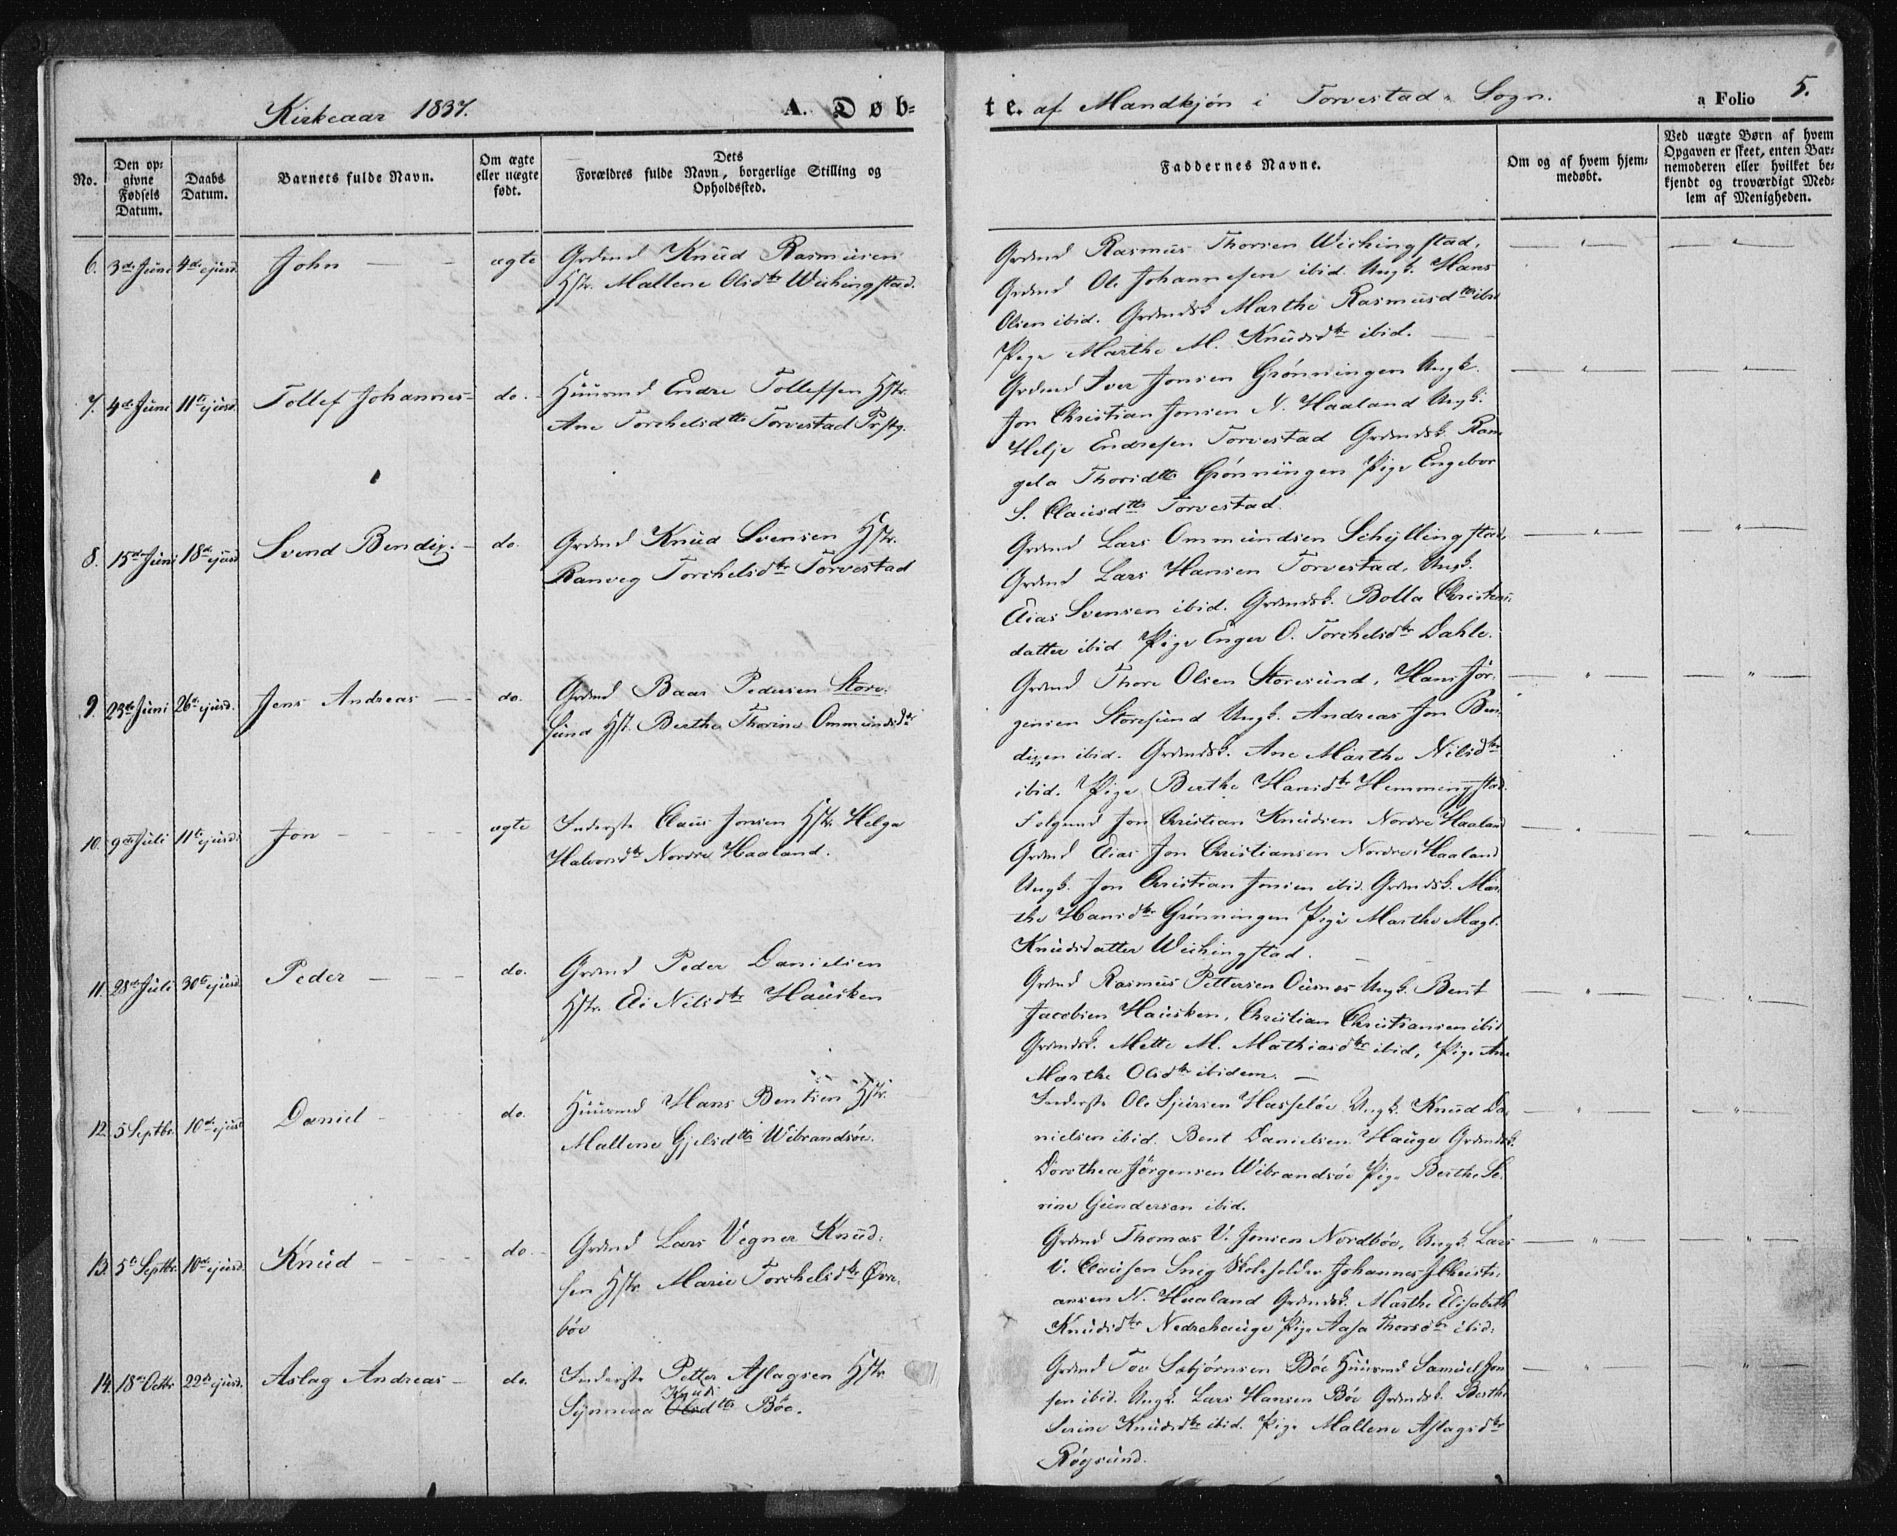 Kirkeaar 1837.
A. Døb-
te. af Mandkjøn i Torvestad Sogn.
a Folio 5.
No.
Den op-
givne
Fødsels
Datum.
Daabs
Datum.
Barnets fulde Navn.
Om ægte
eller uægte
født.
Dets
Forældres fulde Navn, borgerlige Stilling og
Opholdssted.
Faddernes Navne.
Om og af hvem hjem-
medøbt.
Ved uægte Børn af hvem
Opgaven er skeet, enten Bar-
nemoderen eller hvilket be-
kjendt og troværdigt Med-
lem af Menigheden.
6. 3de Juni 4de ejusd. John ægte
Grdmd Knud Rasmusen
Hstr. Mallene Olsdtr Wichingstad.
Grdmd Rasmus Thorsen Wichingstad,
Grdmd Ole Johannesen ibid. Ungk. Hans
Olsen ibid. Grdmdsk. Marthe Rasmusdtr ibid
Pige Marthe M. Knudsdtr ibid.
7. 4de Juni 11te ejusd. Tollef Johannes do.
Huusmd Endre Tollefsen Hstr.
Ane Torchelsdtr Torvestad Prstg.
Grdmd Iver Jonsen Grønningen Ungk.
Jon Christian Jonsen N. Haaland Ungk.
Helje Endresen Torvestad Grdmdsk. Ran
gela Thorsdtr Grønningen Pige Engebor
S. Clausdtr Torvestad.
8. 15de Juni 18de ejusd Svend Bendix do.
Grdmd Knud Svensen Hstr.
Ranveg Torchelsdtr Torvestad
Grdmd Lars Ommundsen Schyllingstad,
Grdmd Lars Hansen Torvestad, Ungk.
Elias Svensen ibid. Grdmdsk. Bolla Christens
datter ibid Pige Enger O. Torchelsdtr Dahle.
9. 23de Juni 26te ejusd. Jens Andreas do.
Grdmd Baar Pedersen Store-
sund Hst. Berthe Thorine Ommundsdtr
Grdmd Thore Olsen Storesund, Hans Jør-
gensen Storesund Ungk. Andreas Jon Ben-
dixen ibid. Grdmdsk. Ane Marthe Nilsdtr
ibid. Pige Berthe Hansdtr Hemmingstad.
10. 9de Juli 11te ejusd. Jon ægte
Inderste Claus Jonsen Hstr. Helga
Halvorsdtr Nordre Haaland.
Folgmd Jon Christian Knudsen Nordre Haaland
Grdmd Elias Jon Christiansen Nordre Haaland
Ungk. Jon Christian Jonsen ibid. Grdmdsk. Mar
the Hansdtr Grønningen Pige Marthe Magl.
Knudsdatter Wichingstad.
11. 28de Juli 30te ejusd. Peder do.
Grdmd Peder Danielsen
Hstr. Eli Nilsdtr Hausken
Grdmd Rasmus Pettersen Ousnes Ungk. Bent
Jacobsen Hausken, Christian Christiansen ibid
Grdmdsk. Mette M. Mathiasdtr ibid, Pige Ane
Marthe Olsdtr ibidem.
12. 5 Septbr. 10de ejusd Daniel do.
Huusmd Hans Bentsen Hstr.
Mallene Gjelsdtr Wibrandsøe.
Inderste Ole Sjursen Hasseløe Ungk. Knud Da-
nielsen ibid. Bent Danielsen Hauge Grdmdsk.
Dorothea Jørgensen Wibrandsøe Pige Berthe Se-
rine Gundersen ibid.
13. 5te Septbr. 10de ejusd. Knud do.
Grdmd Lars Vegner Knud-
sen Hstr. Marie Torchelsdtr Øvre-
bøe
Grdmd Thomas V. Jonsen Nordbøe, Ungk. Lars
V. Clausen Snig Skoleholder Johannes J. Christi-
ansen N. Haaland Grdmdsk. Marthe Elisabeth
Knudsdtr Nedrehauge Pige Aasa Thorsdtr ibid.
14. 18de Octbr 22de ejusd. Aslag Andreas do.
Inderste Petter Aslagsen Hstr
Synneva Knudsdtr Bøe.
Grdmd Tov Sebjørnsen Bøe Huusmd Samuel Jon-
sen ibid. Ungk. Lars Hansen Bøe Grdmdsk. Berthe
Serine Knudsdtr ibid. Pige Mallene Aslagsdtr
Røgsund.